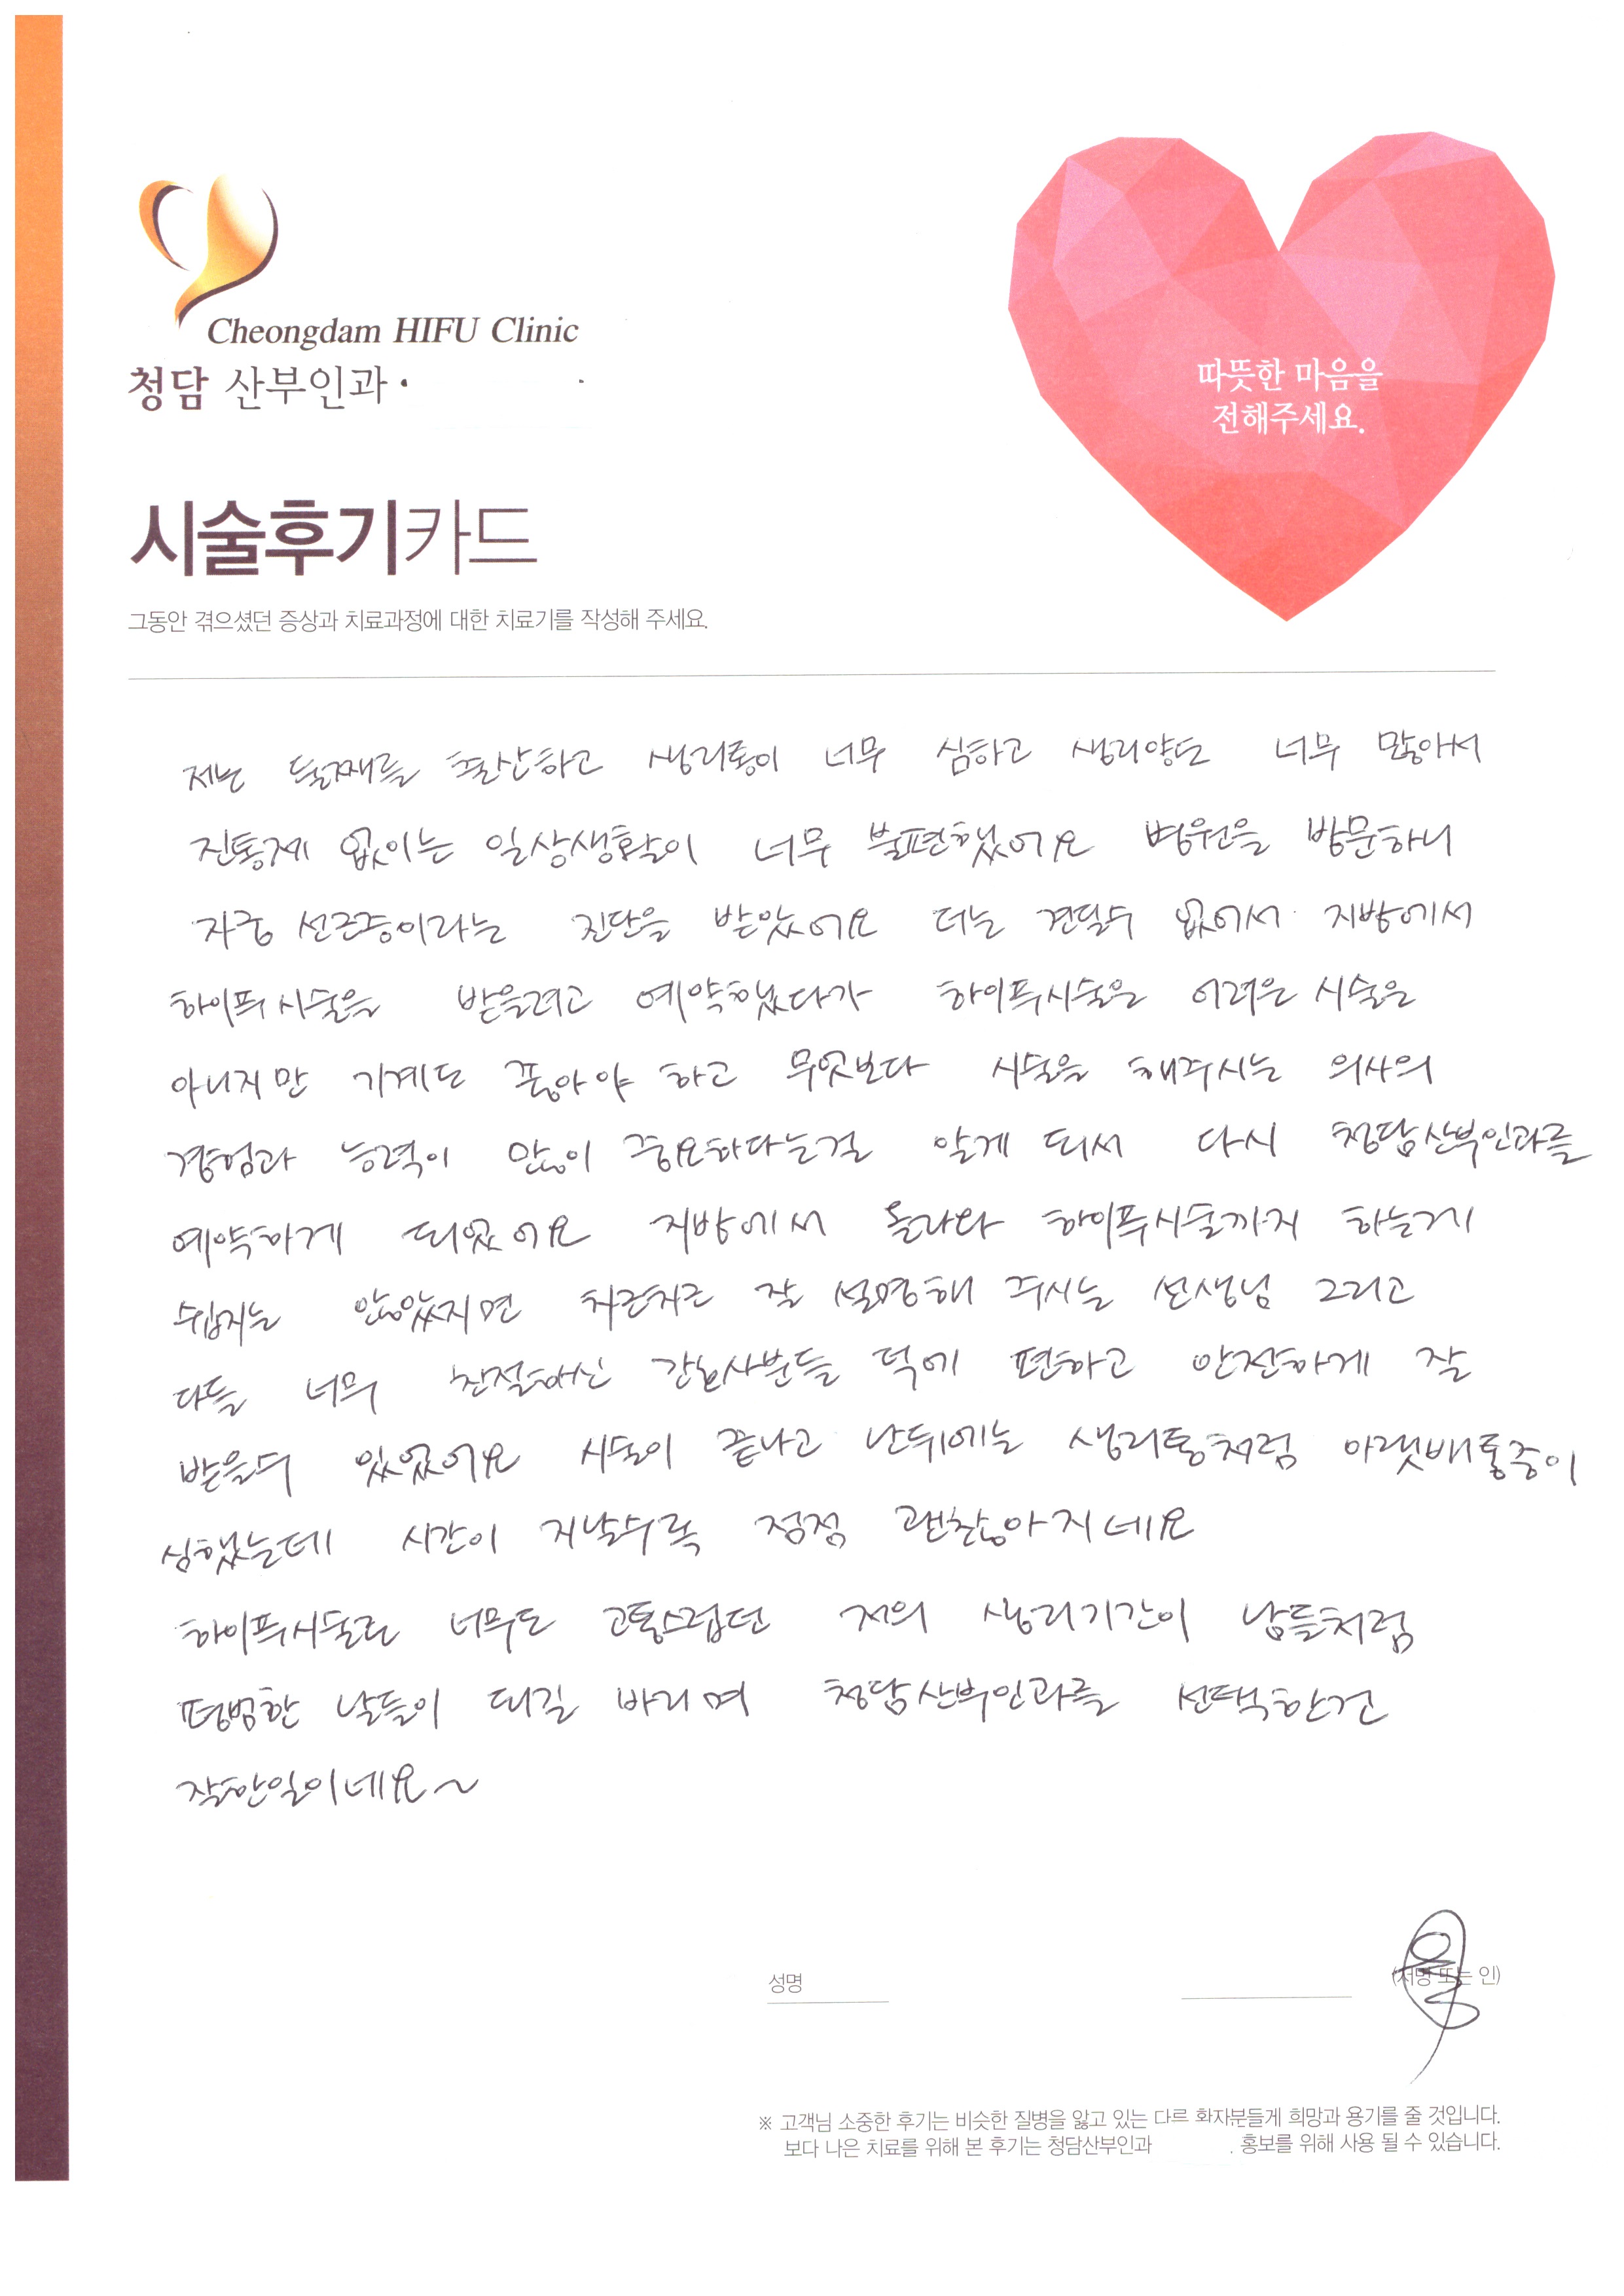 Cheongdam HIFU Clinic
청담 산부인과
따뜻한 마음을
전해주세요.
시술후기카드
그동안 겪으셨던 증상과 치료과정에 대한 치료기를 작성해 주세요.
저는 둘째를 출산하고 생리통이 너무 심하고 생리양도 너무 많아서
진통제 없이는 일상생활이 너무 불편했어요 병원을 방문하니
자궁 선근증이라는 진단을 받았어요 더는 견딜수 없어서 지방에서
하이푸시술을 받을려고 예약했다가 하이푸시술은 어려운 시술은
아니지만 기계도 좋아야 하고 무엇보다 시술을 해주시는 의사의
경험과 능력이 많이 중요하다는걸 알게 되서 다시 청담산부인과를
예약하게 되었어요 지방에서 올라와 하이푸시술까지 하는게
쉽지는 않았지면 차근차근 잘 설명해 주시는 선생님 그리고
다들 너무 친절하신 간호사분들 덕에 편하고 안전하게 잘
받을수 있었어요 시술이 끝나고 난뒤에는 생리통처럼 아랫배통증이
심했는데 시간이 지날수록 점점 괜찮아지네요
하이푸시술로 너무도 고통스럽던 저의 생리기간이 남들처럼
평범한 날들이 되길 바라며 청담산부인과를 선택한건
잘한일이네요~
성명
(서명 또는 인)
※ 고객님 소중한 후기는 비슷한 질병을 앓고 있는 다르 환자분들게 희망과 용기를 줄 것입니다.
보다 나은 치료를 위해 본 후기는 청담산부인과 . 홍보를 위해 사용 될 수 있습니다.